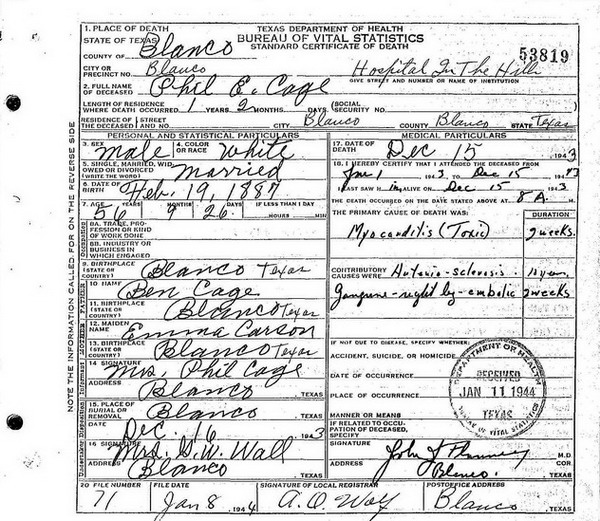 TEXAS DEPARTMENT OF HEALTH
BUREAU OF VITAL STATISTICS
STANDARD CERTIFICATE OF DEATH
53819
1. PLACE OF DEATH
STATE OF TEXAS
COUNTY OF Blanco
CITY OR PRECINCT NO. Blanco Hospital In The Hills
GIVE STREET AND NUMBER OR NAME OF INSTITUTION
2. FULL NAME OF DECEASED Phil E. Cage
LENGTH OF RESIDENCE WHERE DEATH OCCURRED 1 YEARS 2 MONTHS DAYS (SOCIAL SECURITY NO.
RESIDENCE OF THE DECEASED STREET NO. CITY Blanco COUNTY Blanco STATE Texas
PERSONAL AND STATISTICAL PARTICULARS
3. SEX male 4. COLOR OR RACE White
5. SINGLE, MARRIED, WIDOWED OR DIVORCED (WRITE THE WORD) married
6. DATE OF BIRTH Feb. 19, 1887
7. AGE YEARS MONTHS DAYS IF LESS THAN 1 DAY
56 9 26 HOURS MIN
8A. TRADE, PROFESSION OR KIND OF WORK DONE
8B. INDUSTRY OR BUSINESS IN WHICH ENGAGED
9. BIRTHPLACE (STATE OR COUNTRY) Blanco Texas
10. NAME Ben Cage
11. BIRTHPLACE (STATE OR COUNTRY) Blanco Texas
12. MAIDEN NAME Emma Carson
13. BIRTHPLACE (STATE OR COUNTRY) Blanco Texas
14. SIGNATURE Mrs. Phil Cage
ADDRESS Blanco TEXAS
15. PLACE OF BURIAL OR REMOVAL Blanco TEXAS
DATE Dec. 16 1943
16. SIGNATURE Mrs. G. W. Wall
ADDRESS Blanco TEXAS
MEDICAL PARTICULARS
17. DATE OF DEATH Dec 15 1943
18. I HEREBY CERTIFY THAT I ATTENDED THE DECEASED FROM
1 1943 TO Dec 15 1943
I LAST SAW HIM ALIVE ON Dec 15 1943
THE DEATH OCCURRED ON THE DATE STATED ABOVE AT 8 A. M.
THE PRIMARY CAUSE OF DEATH WAS: DURATION
Myocarditis (Toxic) 2 weeks
CONTRIBUTORY CAUSES WERE Arterio-sclerosis
Gangrene - right leg - embolic 2 weeks
IF NOT DUE TO DISEASE, SPECIFY WHETHER:
ACCIDENT, SUICIDE, OR HOMICIDE
DATE OF OCCURRENCE
PLACE OF OCCURRENCE
MANNER OR MEANS
IF RELATED TO OCCUPATION OF DECEASED, SPECIFY
DEPARTMENT OF HEALTH
RECEIVED
JAN 11 1944
TEXAS
OF VITAL STATISTICS
M.D.
COR.
Blanco. TEXAS
20 FILE NUMBER FILE DATE SIGNATURE OF LOCAL REGISTRAR POSTOFFICE ADDRESS
71 Jan 8 1944 A. O. Wolf Blanco TEXAS
NOTE THE INFORMATION CALLED FOR ON THE REVERSE SIDE
Father
Mother
Informant